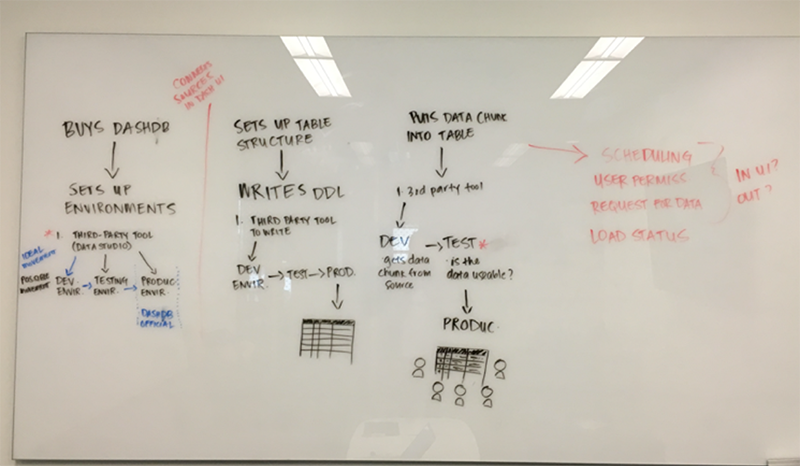 CONNECTS
SOURCES
IN DASH UI
BUYS DASHDB
SETS UP
ENVIRONMENTS
* 1. THIRD-PARTY TOOL
(DATA STUDIO)
IDEAL
MOVEMENT
POSSIBLE
MOVEMENT
DEV
ENVIR.
TESTING
ENVIR.
PRODUC.
ENVIR.
DASHDB
OFFICIAL
SETS UP TABLE
STRUCTURE
WRITES DDL
1. THIRD PARTY TOOL
TO WRITE
DEV
ENVIR.
TEST
PROD.
PUTS DATA CHUNK
INTO TABLE
1. 3rd party tool
DEV
gets data
chunk from
source
TEST *
is the
data usable?
PRODUC.
SCHEDULING
USER PERMISS
REQUEST FOR DATA
LOAD STATUS
IN UI?
OUT?